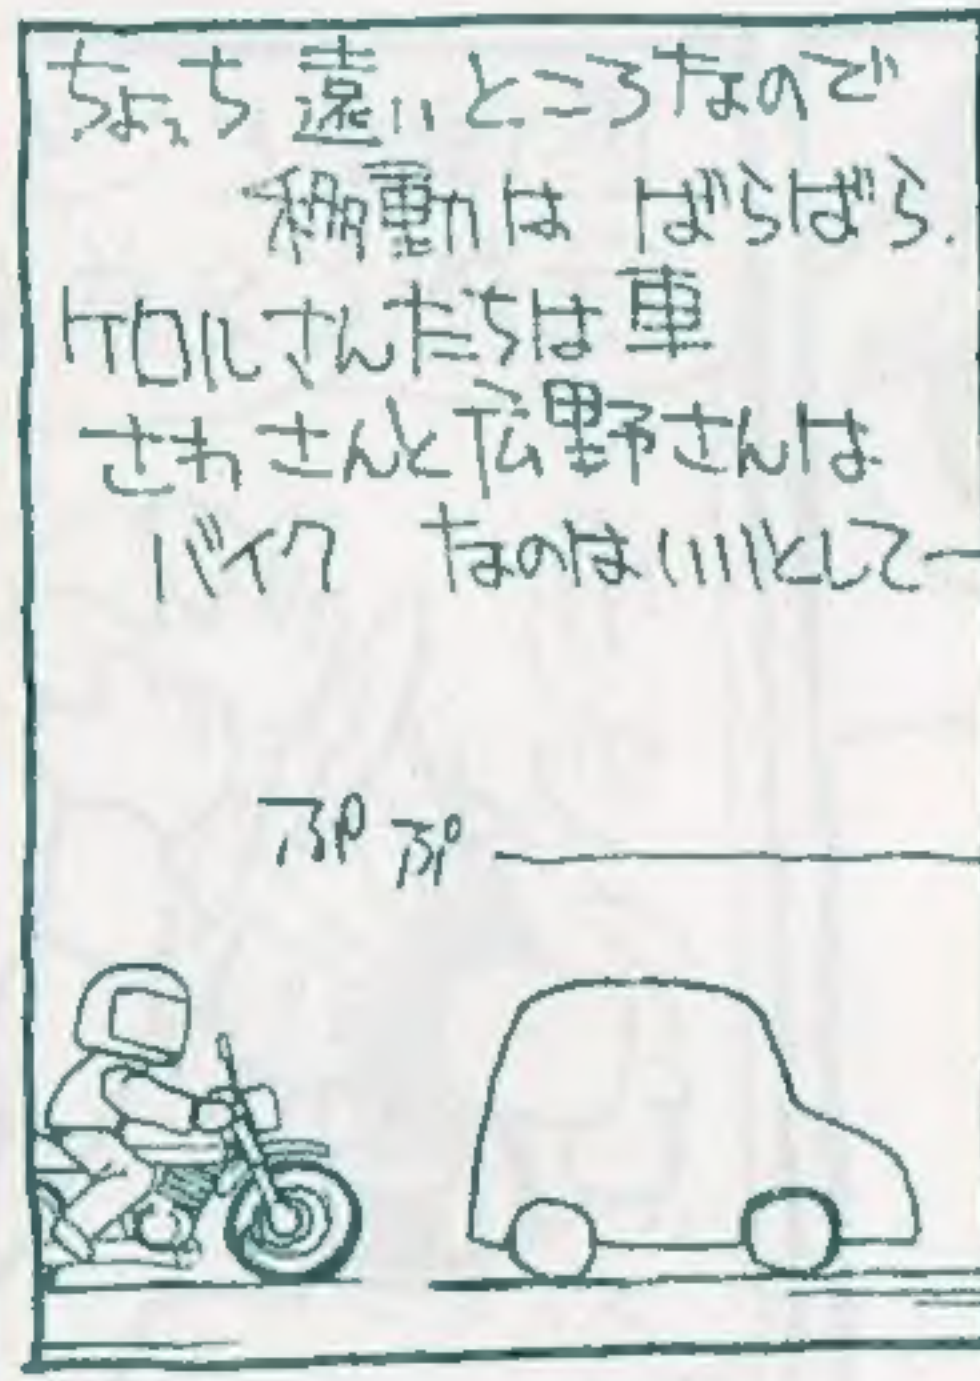 ちょっち遠いところなので
移動は ばらばら.
ケロルさんたちは車
さわさんと広野さんは
バイク なのはいいとして—
ぷぷ